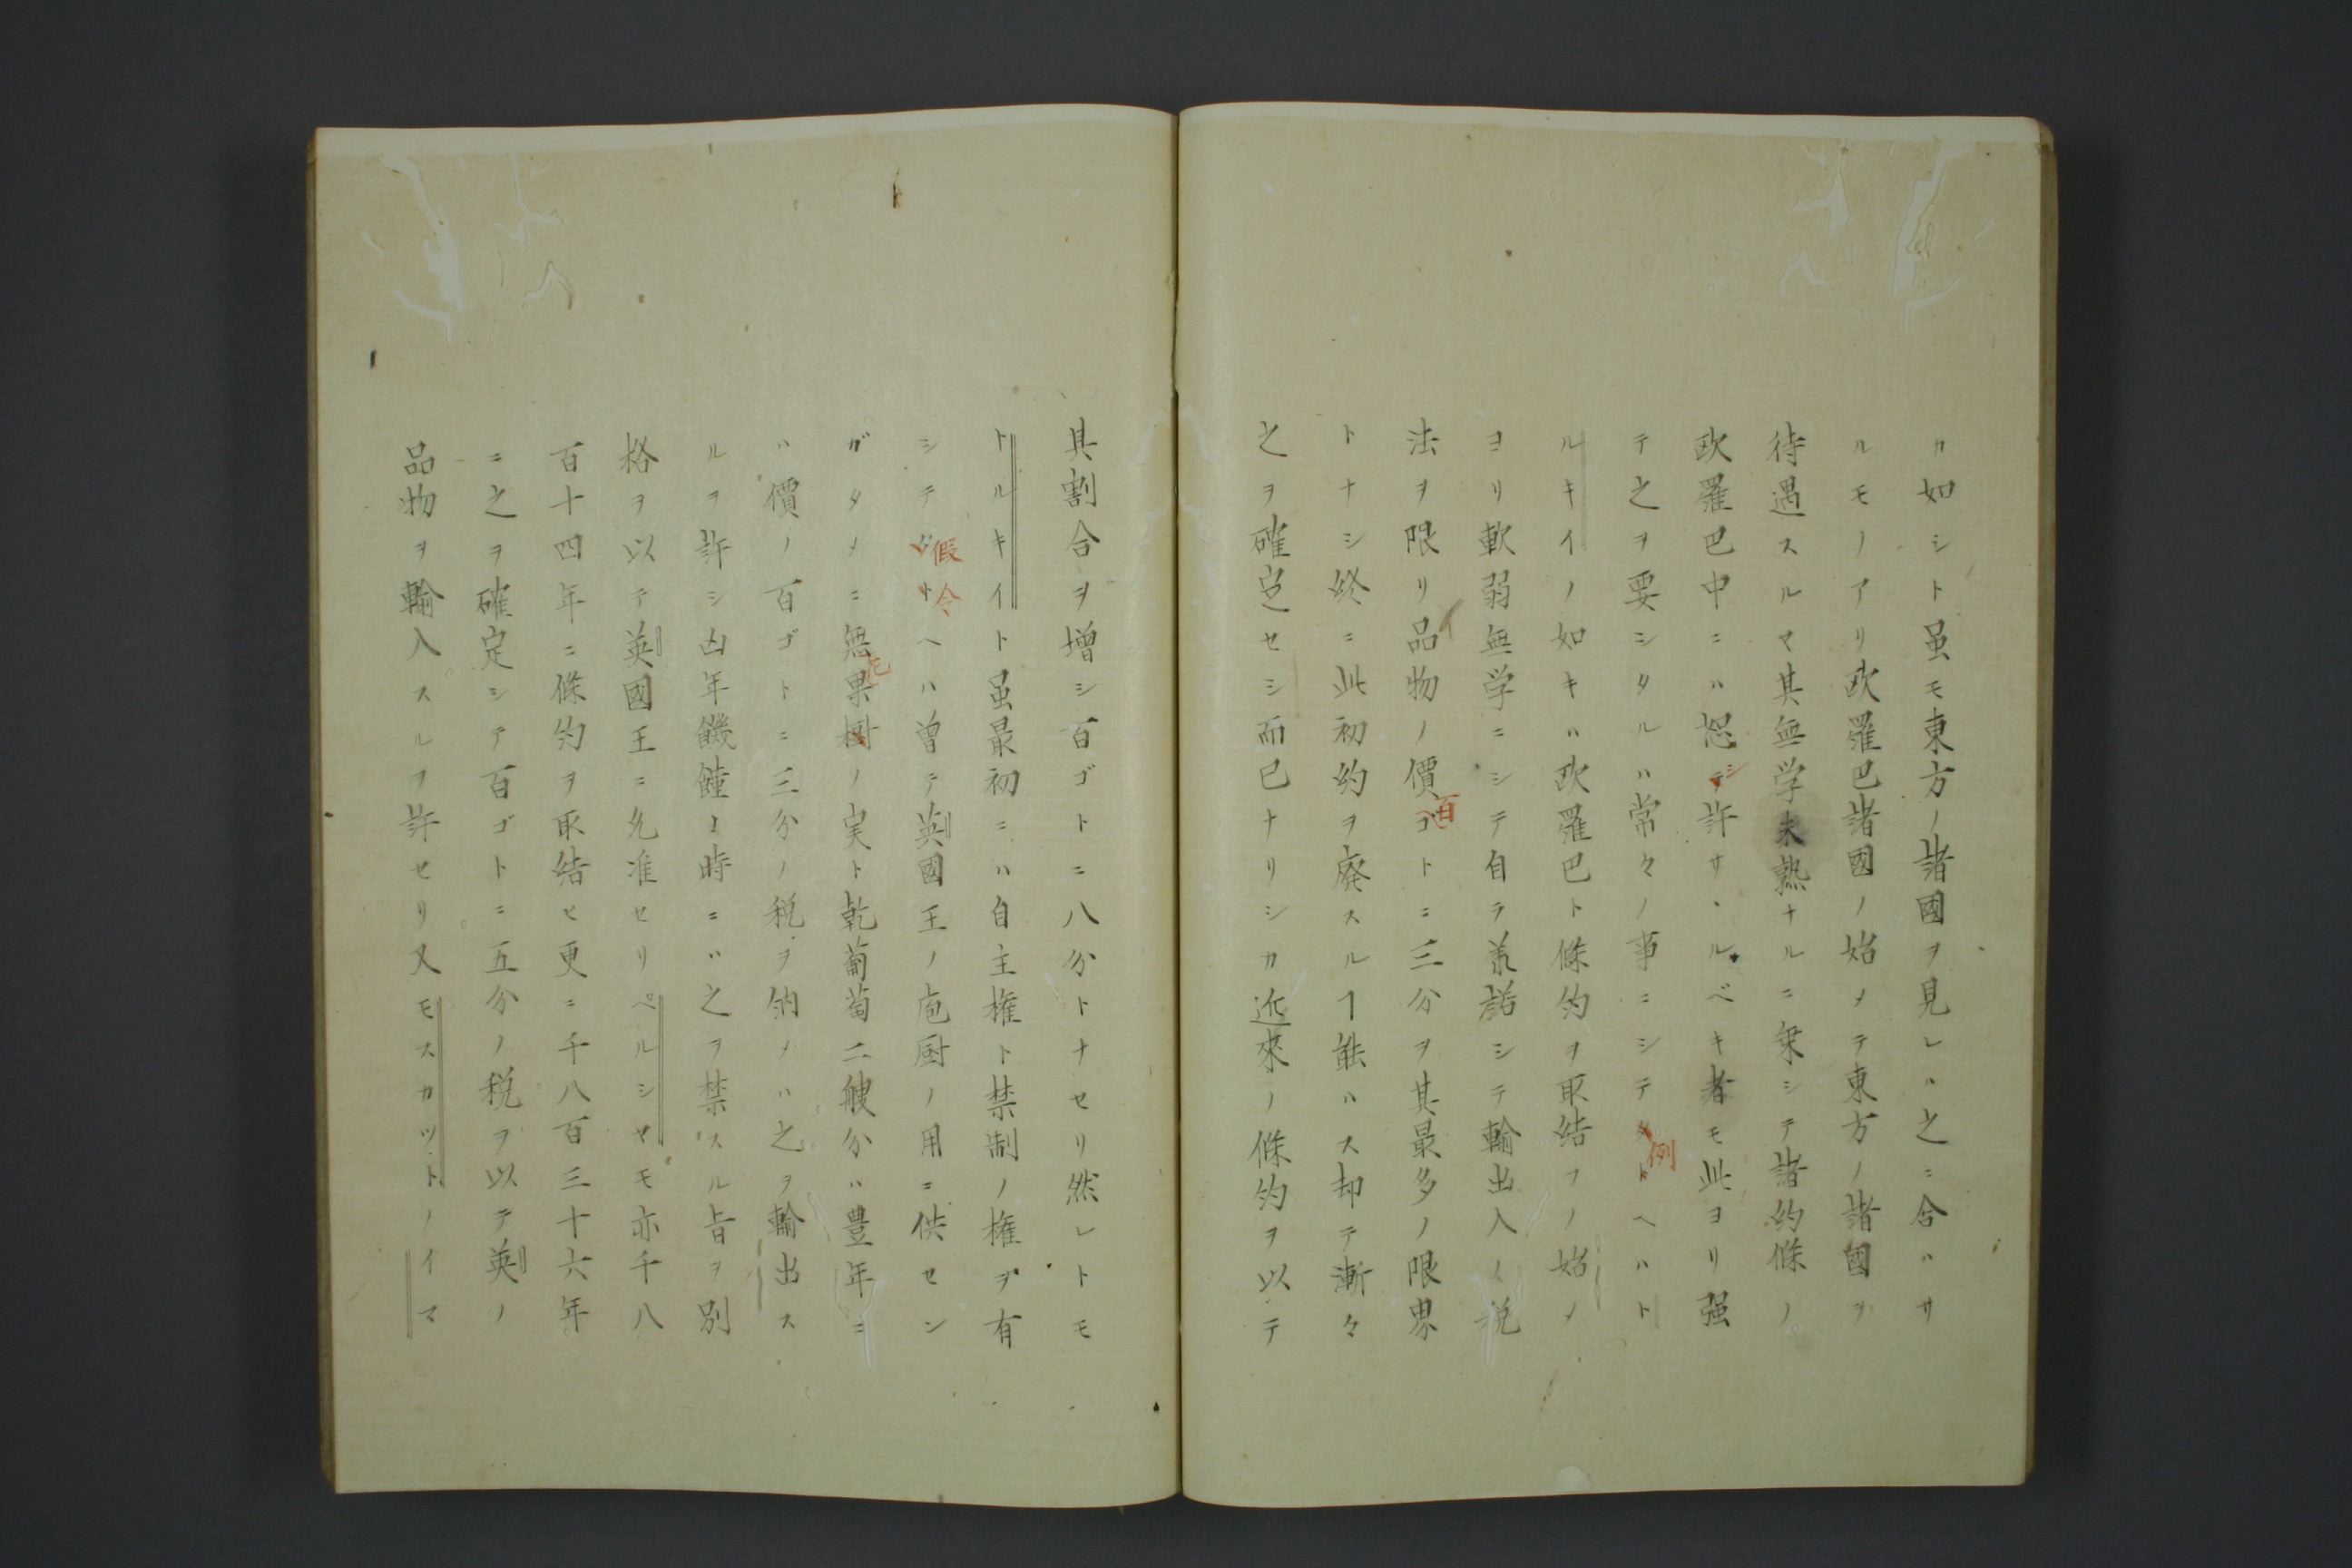 カ如シト虽モ東方ノ諸國ヲ見レハ之ニ合ハサ
ルモノアリ欧羅巴諸國ノ始メテ東方ノ諸國ヲ
待遇スルヤ其無学未熟ナルニ乗シテ諸約條ノ
欧羅巴中ニハ恕シテ許サヽルベキ者モ此ヨリ强
テ之ヲ要シタルハ常々ノ事ニシテ例ヘハト
ルキイノ如キハ欧羅巴ト條約ヲ取結フノ始メ
ヨリ軟弱無学ニシテ自ラ羕諾シテ輸出入ノ税
法ヲ限リ品物ノ價百ゴトニ三分ヲ其最多ノ限界
トナシ終ニ此初約ヲ廃スルヿ能ハス却テ漸々
之ヲ確定セシ而已ナリシカ近來ノ條約ヲ以テ
其割合ヲ增シ百ゴトニ八分トナセリ然レトモ
トルキイト虽最初ニハ自主権ト禁制ノ権ヲ有
シテ假令ヘハ曽テ英國王ノ庖厨ノ用ニ供セン
ガタメニ無花果樹ノ実ト乾葡萄二艘分ハ豊年ニ
ハ價ノ百ゴトニ三分ノ税ヲ納メハ之ヲ輸出ス
ルヲ許シ凶年饑饉ノ時ニハ之ヲ禁スル旨ヲ別
格ヲ以テ英國王ニ允准セリペルシヤモ亦千八
百十四年ニ條約ヲ取結ヒ更ニ千八百三十六年
ニ之ヲ確定シテ百ゴトニ五分ノ税ヲ以テ英ノ
品物ヲ輸入スルヲ許セリ又モスカットノイマ